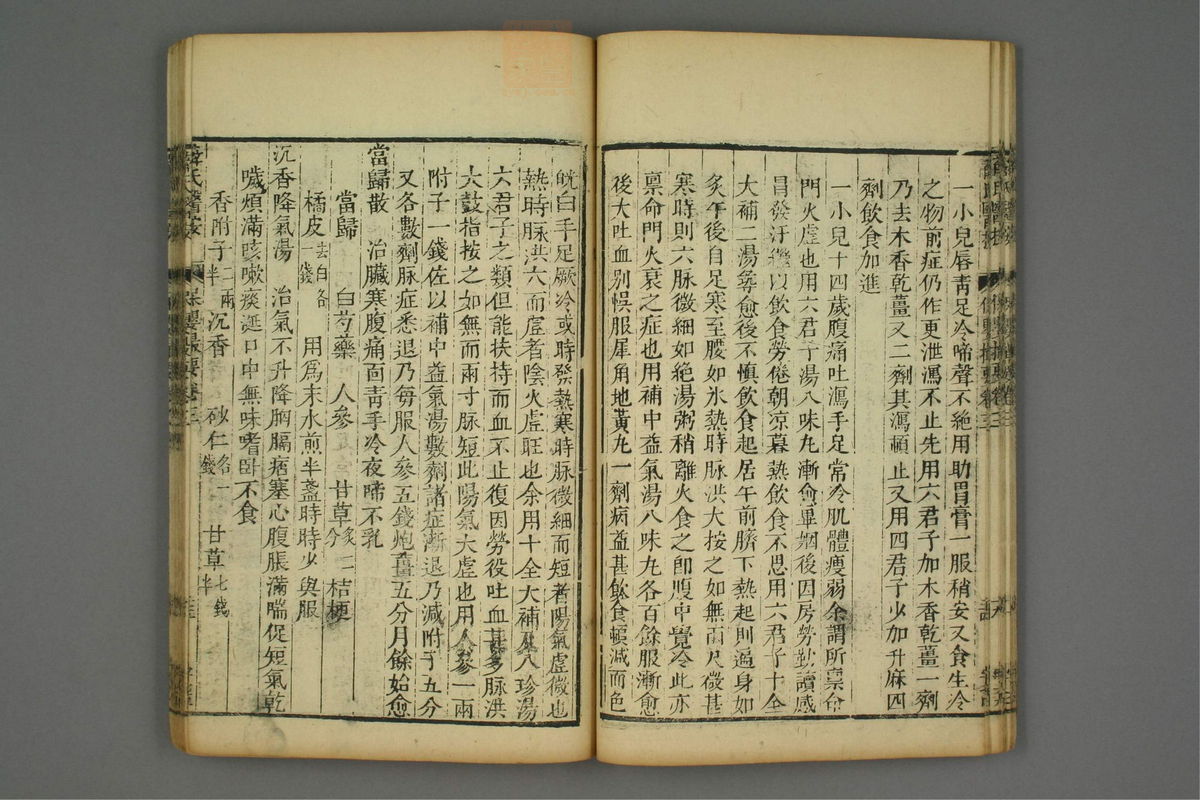 一小兒唇靑足冷啼聲不絶用助胃膏一服稍安又食生冷
之物前症仍作更泄瀉不止先用六君子加木香乾薑一劑
乃去木香乾薑又二劑其瀉頓止又用四君子少加升麻四
劑飲食加進
一小兒十四歲腹痛吐瀉手足常冷肌體瘦弱余謂所禀命
門火虛也用六君子湯八味丸漸愈畢姻後因房勞勤讀感
昌發汗繼以飲食勞倦朝凉暮熱飲食不思用六君子十全
大補二湯尋愈後不愼飲食起居午前臍下熱起則遍身如
炙午後自足寒至腰如氷熱時脉洪大按之如無兩尺微甚
寒時則六脉微細如絶湯粥稍離火食之卽腹中覺冷此亦
禀命門火衰之症也用補中益氣湯八味丸各百餘服漸愈
後大吐血别悞服犀角地黃丸一劑病益甚飲食頓減而色
㿠白手足厥冷或時發熱寒時脉微細而短者陽氣虛微也
熱時脉洪大而虛者陰火虛旺也余用十全大補及八珍湯
六君子之類但能扶持而血不止復因勞役吐血甚多脉洪
大鼓指按之如無而兩寸脉短此陽氣大虛也用人參一兩
附子一錢佐以補中益氣湯數劑諸症漸退乃減附子五分
又各數劑脉症悉退乃每服人參五錢炮薑五分月餘始愈
當歸散 治臟寒腹痛面靑手冷夜啼不乳
當歸 白芍藥 人參 甘草炙二分 桔梗
橘皮去白各一錢 用爲末水煎半盞時時少與服
沉香降氣湯 治氣不升降胸膈痞塞心腹脹滿喘促短氣乾
噦煩滿咳嗽痰涎口中無味嗜卧不食
香附子二兩半 沉香 砂仁各一錢 甘草七錢半
薛氏醫案 保嬰撮要卷三